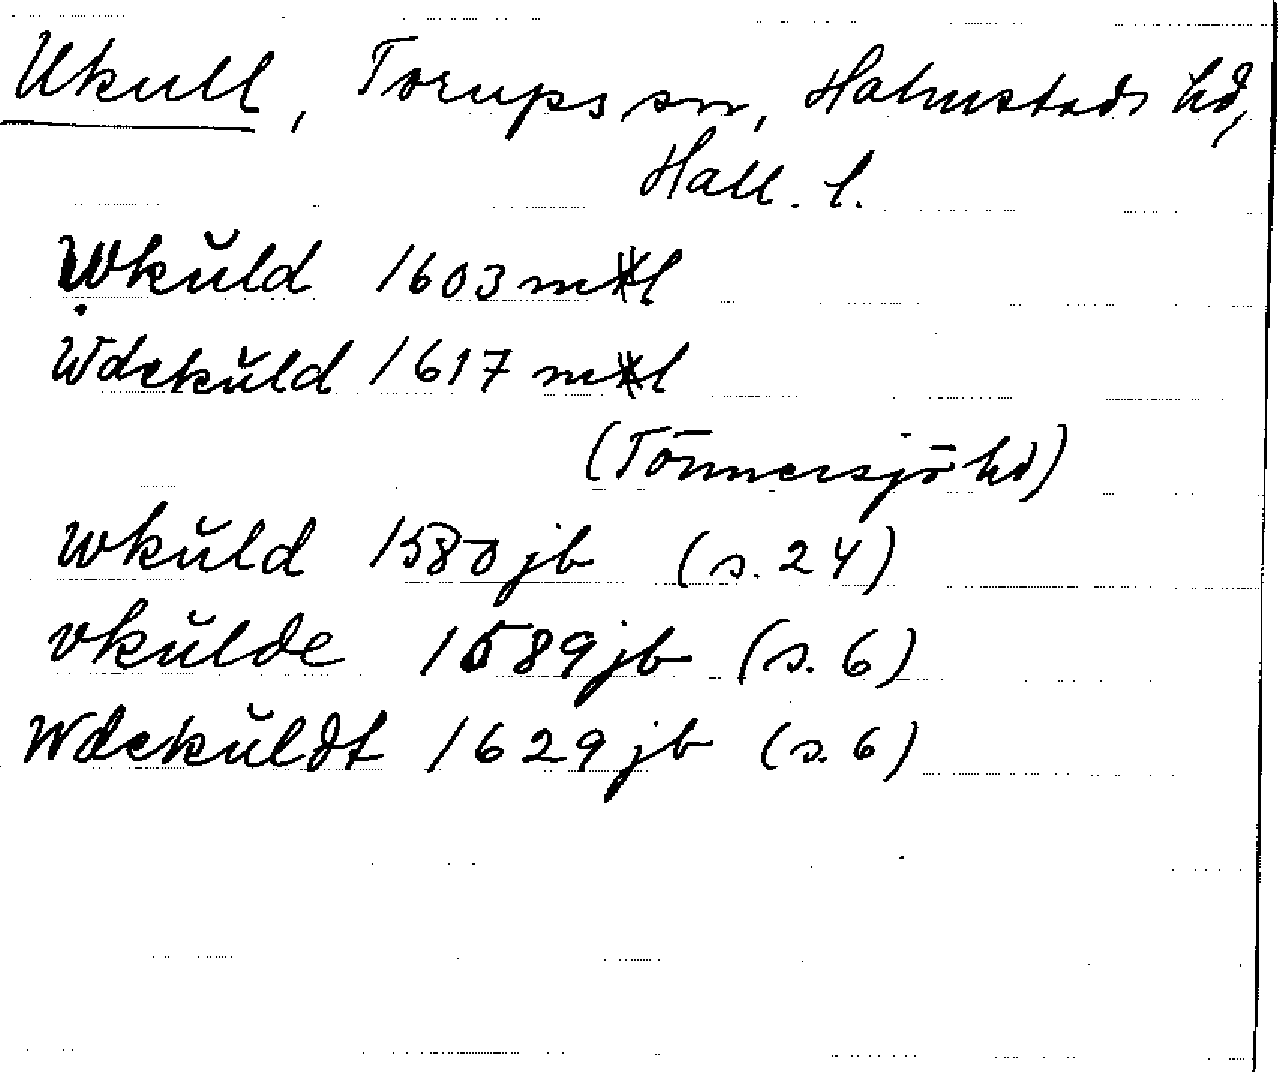 Ukull, Torups sn, Halmstads hd,
Hall. l.
Wkŭld 1603 mtl
Wdekŭld 1617 mtl
(Tönnersjö hd)
wkŭld 1580 jb (s. 24)
vkŭlde 1589 jb (s. 6)
Wdekŭldt 1629 jb (s. 6)